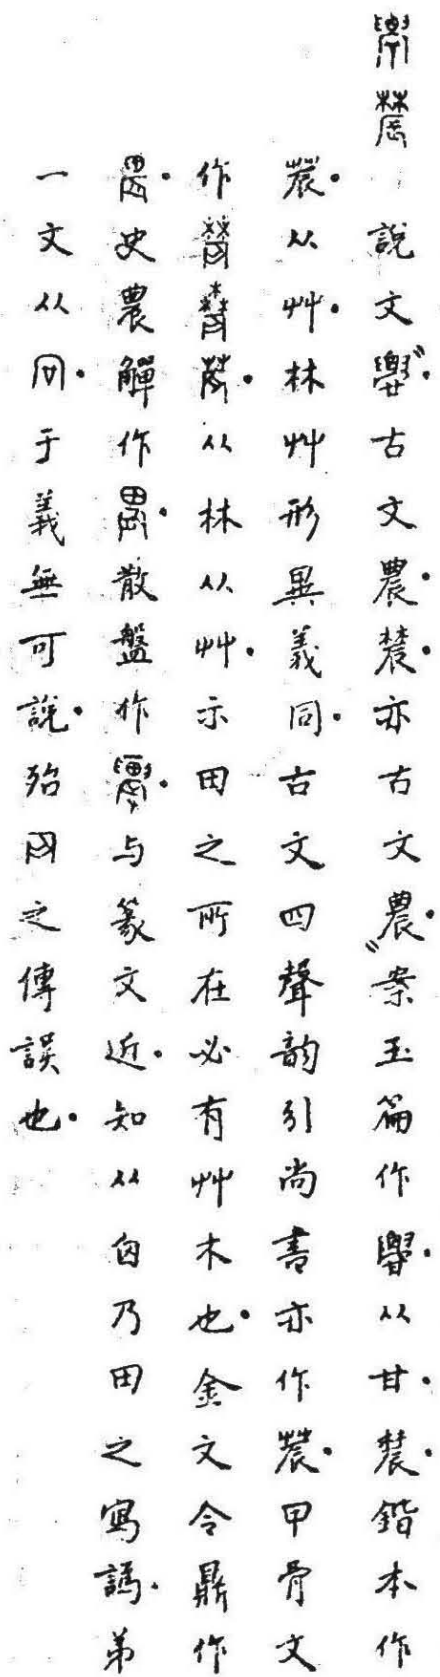 說文𦦥古文農·𣊟亦古文農·案玉篇作·从甘·鍇本作
从艸·林艸形異義同·古文四聲韵引尚書亦作·甲骨文
作·从林从艸·示田之所在必有艸木也·金文令鼎作
史農觶作·散盤作·与篆文近·知从囟乃田之寫譌·弟
一文从·于義無可說·殆之傳誤也·